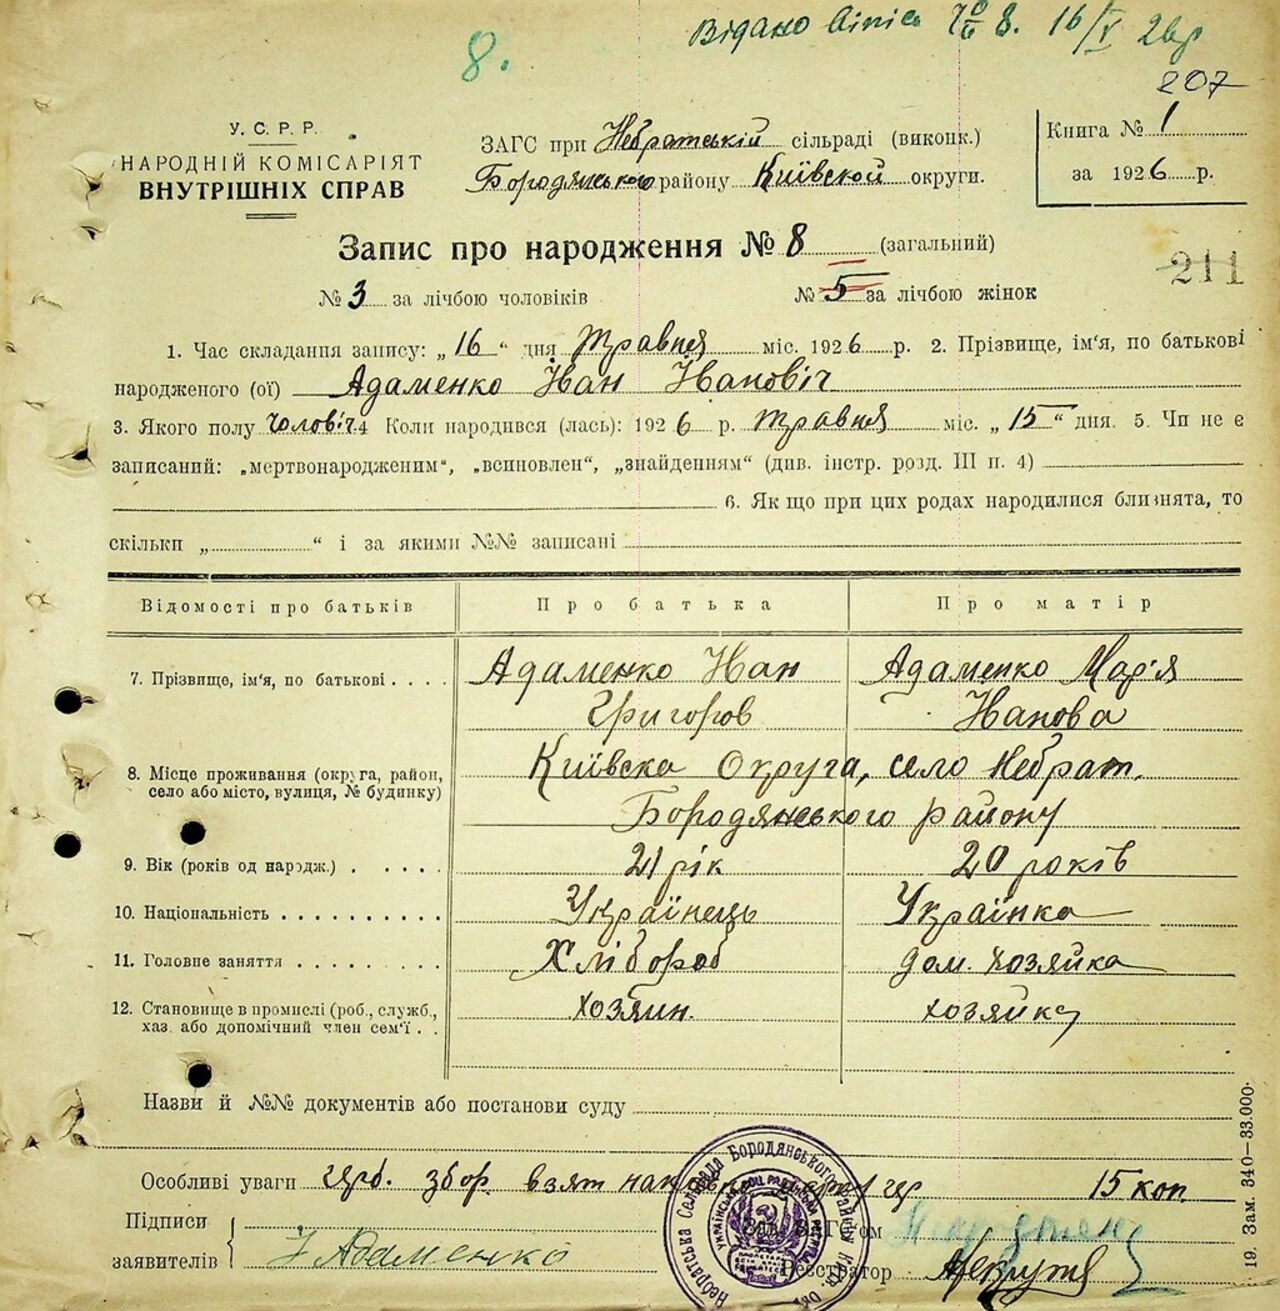 Відано 16/V 26р
8.
207
У. С. Р. Р.
НАРОДНІЙ КОМІСАРІЯТ
ВНУТРІШНІХ СПРАВ
ЗАГС при Небратській сільраді (виконк.)
Бородянського району Київской округи.
Книга № 1
за 1926 р.
Запис про народження № 8 (загальний)
211
№ 3 за лічбою чоловіків
№ 5 за лічбою жінок
1. Час складання запису: „16“ дня Травня міс. 1926 р. 2. Прізвище, ім'я, по батькові
народженого (ої) Адаменко Іван Івановіч
3. Якого полу чоловіч. 4 Коли народився (лась): 1926 р. травня міс. „15“ дня. 5. Чи не є
записаний: „мертвонародженим“, „всиновлен“, „знайденням“ (див. інстр. розд. III п. 4)
6. Як що при цих родах народилися близнята, то
скільки „ “ і за якими №№ записані
Відомості про батьків Про батька Про матір
7. Прізвище, ім'я, по батькові . . . . Адаменко Иван Адаменко Мар'я
Григоров Иванова
8. Місце проживання (округа, район,
село або місто, вулиця, № будинку)
Київска Округа, село Небрат.
Бородянського району
9. Вік (років од народж.) . . . . . 21 рік 20 років
10. Національність . . . . . . . . . . Українець Українка
11. Головне заняття . . . . . . . . . Хлібороб дом. хозяйка
12. Становище в промислі (роб., служб.,
хаз. або допомічний член сем'ї . . хозяин. хозяйка
Назви й №№ документів або постанови суду
Особливі уваги збор взят 15 коп
Підписи
заявителів І Адаменко
Зав. ЗАГС'ом
Реєстратор Некрутя
Небратська Сельрада Бородянського району Київ. Окр.
19. Зам. 340—33.000.